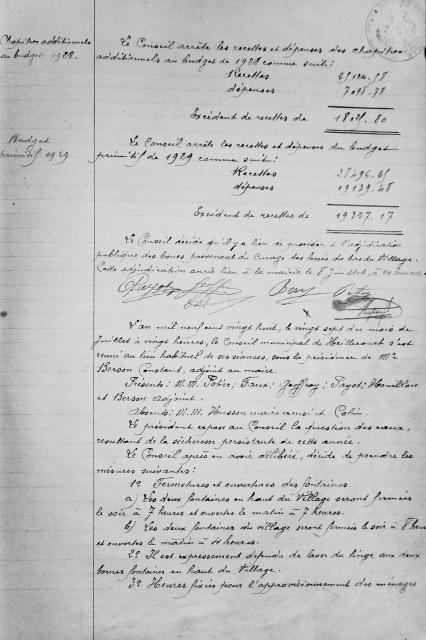 Chapitres additionnels
au budget 1928.
Le Conseil arrête les recettes et dépenses des chapitres
additionnels au budget de 1928 comme suit:
Recettes
dépenses 7098.78
Excédent de recettes de 18025.80
Budget
primitif 1929
Le Conseil arrête les recettes et dépenses du budget
primitif de 1929 comme suit:
Recettes 38496.65
dépenses 19139.48
Excédent de recettes de 19357.17
Le Conseil décide qu'il y a lieu de procéder à l'adjudication
publique des boues provenant du curage des fossés du bas du Village.
Cette adjudication aura lieu à la mairie le 8 Juillet, à 14 heures.
L'an mil neuf cent vingt huit, le vingt sept du mois de
Juillet à vingt heures, le Conseil municipal de Heillecourt s'est
réuni au lieu habituel de ses séances, sous la présidence de Mr
Berson Constant, adjoint au maire.
Présents: M.M. Potier; Faux; Geoffroy; Payot; Houillon
et Berson adjoint.
Absents: M.M. Husson maire excusé et Colin.
Le président expose au Conseil la question des eaux,
résultant de la sécheresse persistante de cette année.
Le Conseil après en avoir délibéré, décide de prendre les
mesures suivantes:
1º Fermetures et ouvertures des fontaines
a) Les deux fontaines en haut du Village seront fermées
le soir à 7 heures et ouvertes le matin à 7 heures.
b) Les deux fontaines du village seront fermées le soir à 8 heures
et ouvertes le matin à 4 heures.
2º Il est expressement défendu de laver du linge aux deux
bornes fontaines en haut du Village.
3º Heures fixées pour l'approvisionnement des ménages